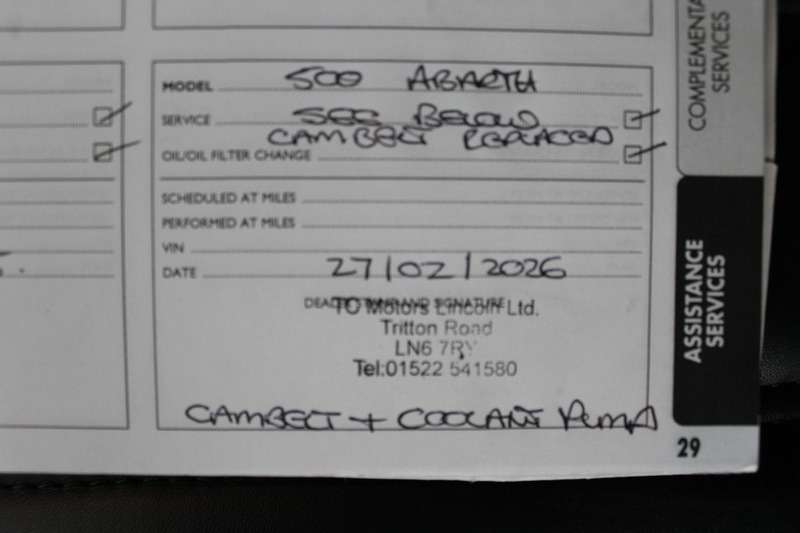 COMPLEMENTA
SERVICES
MODEL 500 ABARTH
SERVICE SEE BELOW
CAMBELT REPLACED
OIL/OIL FILTER CHANGE
SCHEDULED AT MILES
PERFORMED AT MILES
VIN
DATE 27/02/2026
DEALER STAMP AND SIGNATURE
TC Motors Lincoln Ltd.
Tritton Road
LN6 7RY
Tel:01522 541580
CAMBELT + COOLANT PUMP
ASSISTANCE
SERVICES
29